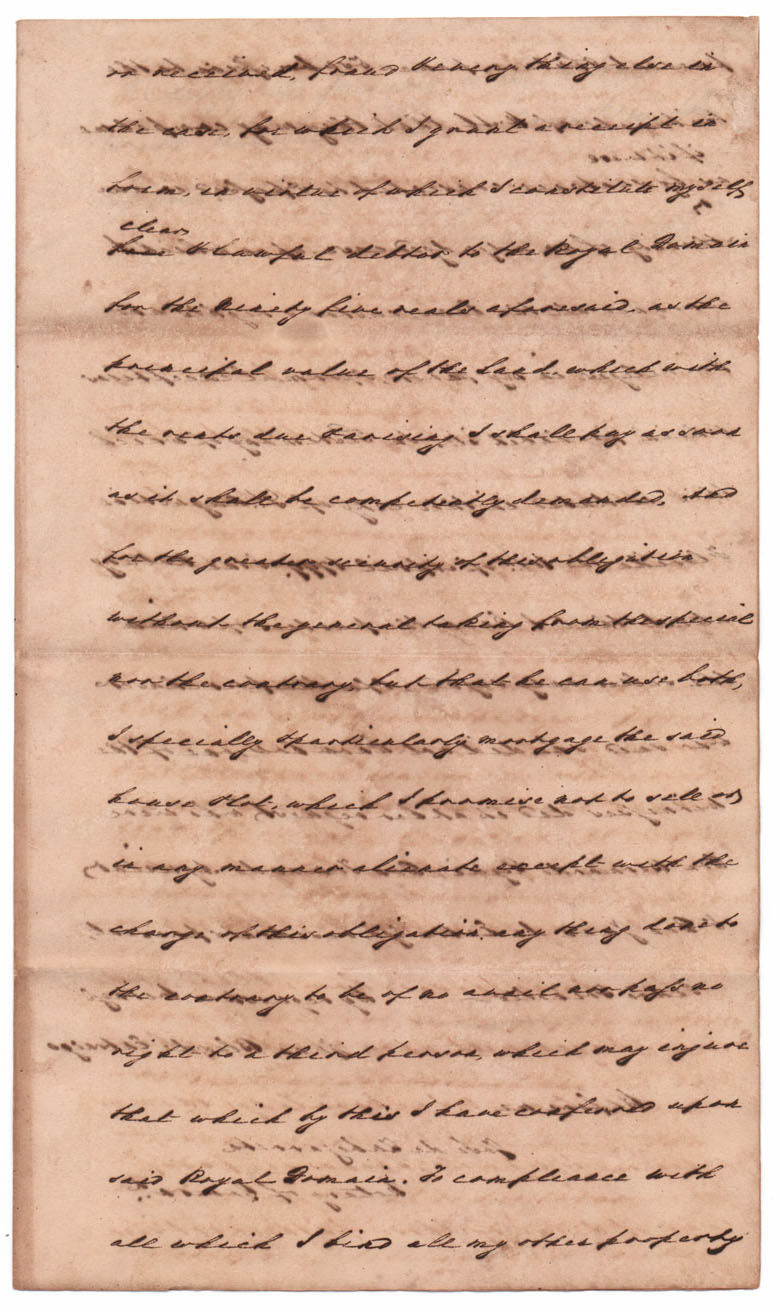 or received, fraud & every thing else in
the case, for which I grant a receipt in
form, in virtue of which I constitute myself
clear
& lawful debtor to the Royal Domain
for the Ninety five reals aforesaid, as the
principal value of the Land, which with
the rents due & arising I shall pay as soon
as it shall be competently demanded, And
for the greater security of this obligation
without the general taking from the special
nor the contrary, but that he can use both,
I specially & particularly mortgage the said
house & lot, which I promise not to sell or
in any manner alienate except with the
charge of this obligation, any thing done to
the contrary to be of no avail nor pass no
right to a third person, which may injure
that which by this I have conferred upon
said Royal Domain. To compliance with
all which I bind all my other property